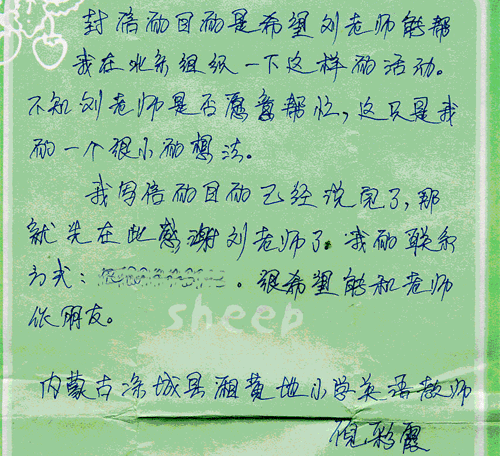 封信的目的是希望刘老师能帮
我在北京组织一下这样的活动。
不知刘老师是否愿意帮忙，这只是我
的一个很小的想法。
我写信的目的已经说完了，那
就先在此感谢刘老师了。我的联系
方式：。很希望能和老师
做朋友。
sheep
内蒙古凉城县厢黄地小学英语教师
倪彩霞